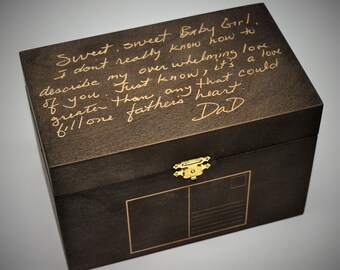 Sweet, sweet Baby Girl,
I dont really know how to
describe my overwhelming love
of you. Just know, it's a love
greater than any that could
fill one fathers heart.
DaD